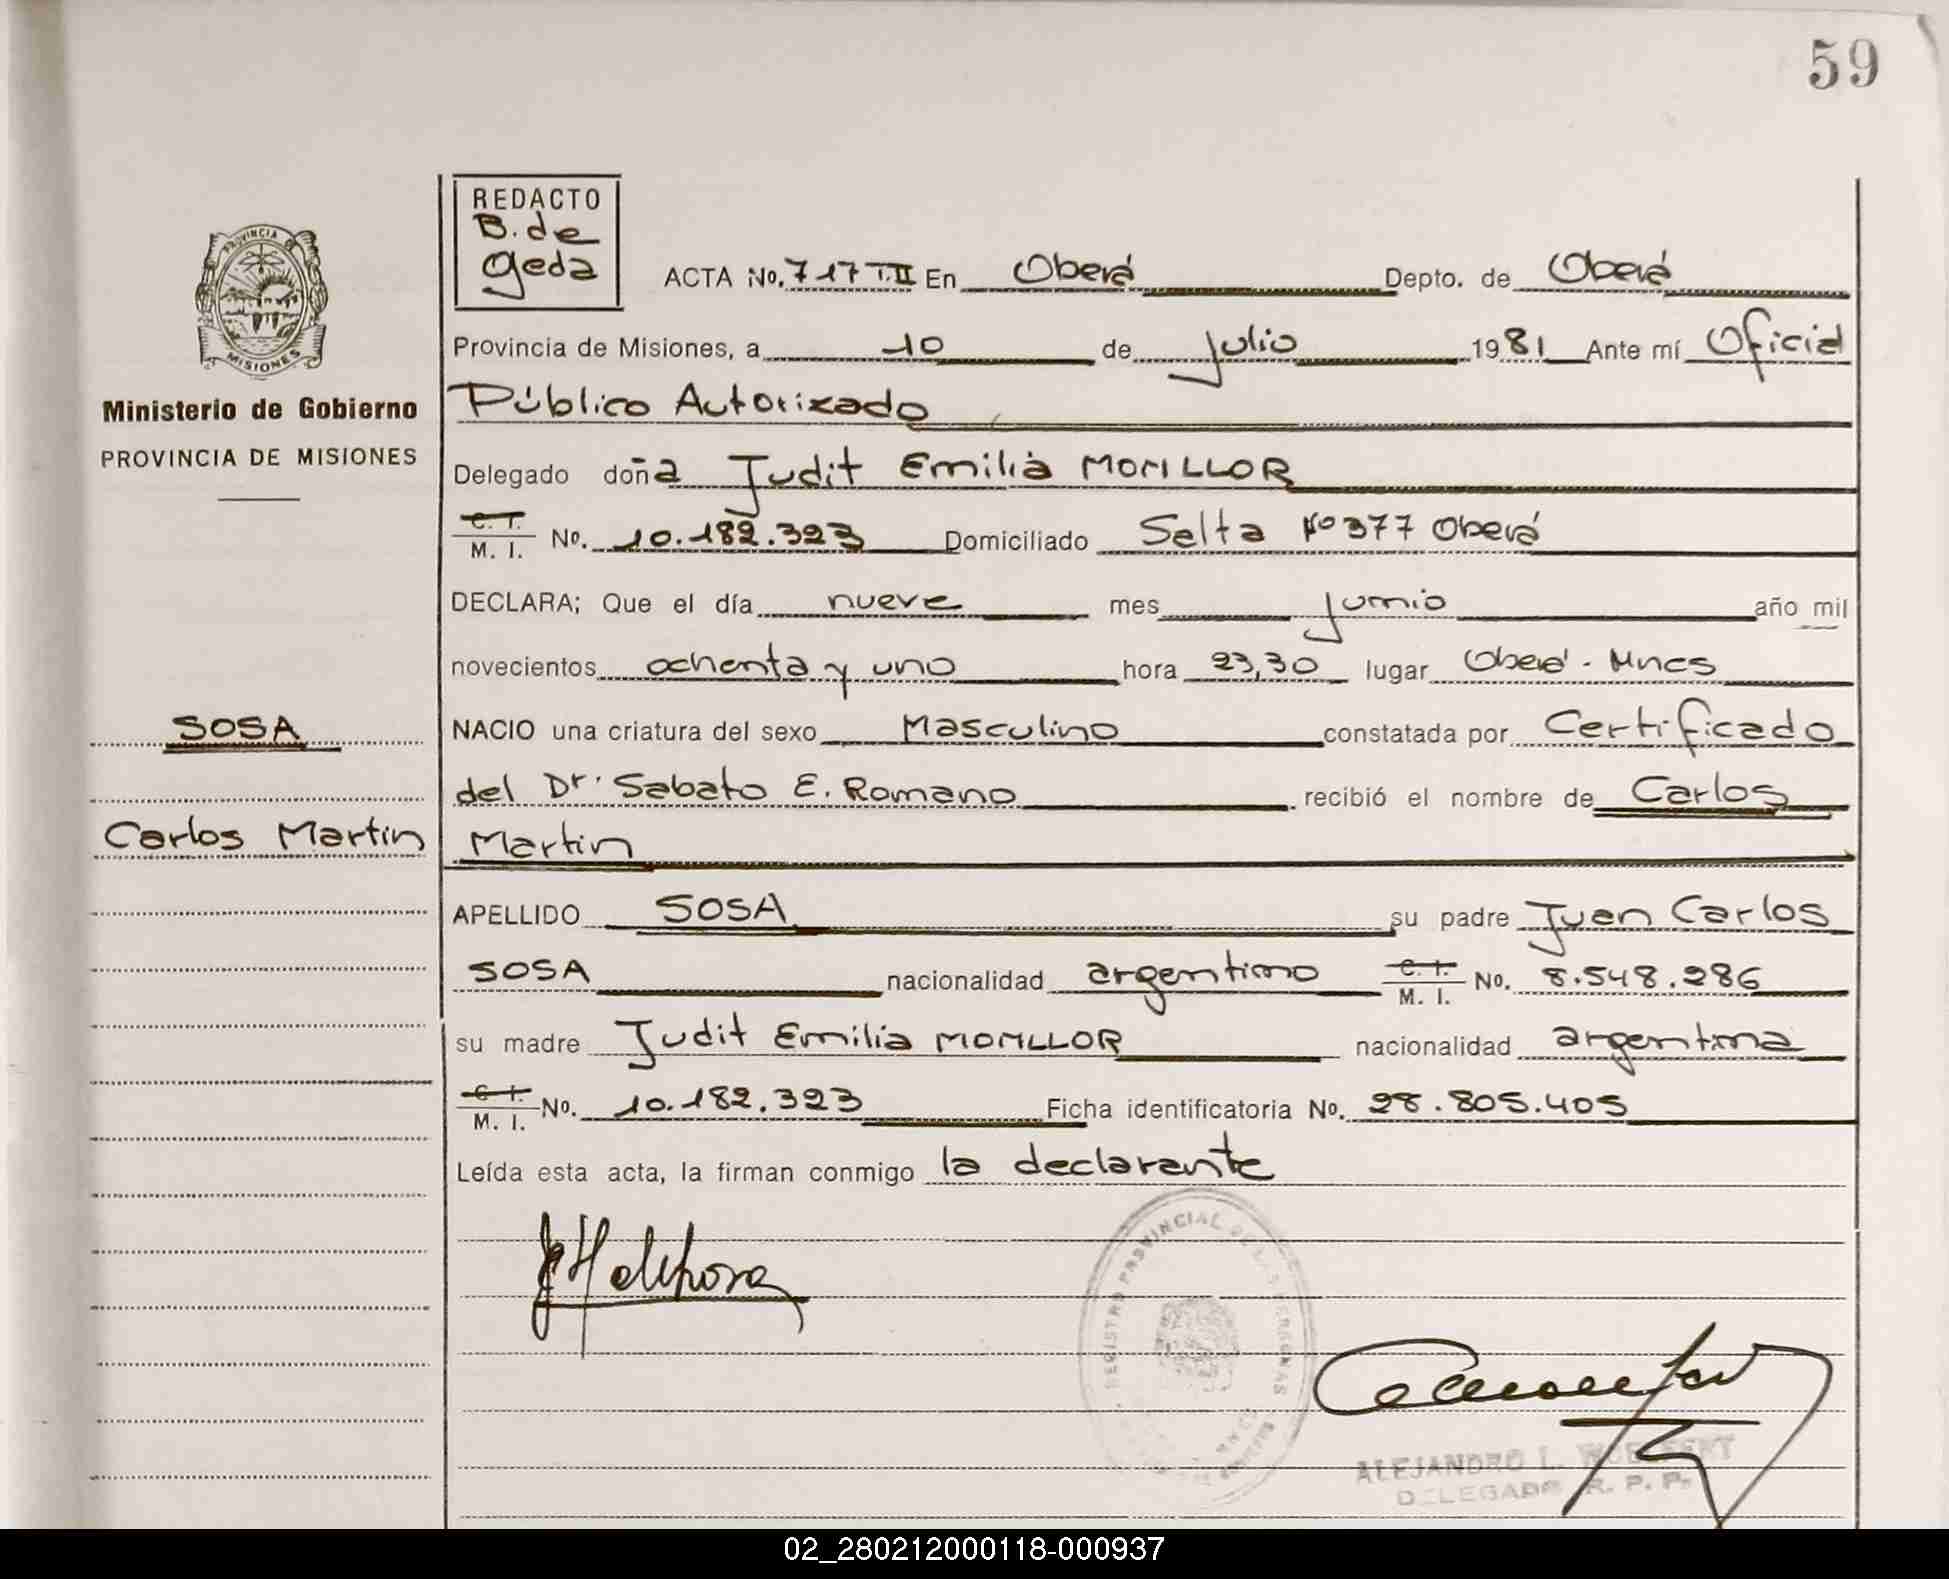 59
REDACTO
B. de
Geda
ACTA No. 717 T.II En Oberá Depto. de Oberá
PROVINCIA DE
MISIONES
Provincia de Misiones, a 10 de Julio 1981 Ante mí Oficial
Ministerio de Gobierno
Público Autorizado
PROVINCIA DE MISIONES
Delegado doña Judit Emilia MOMLLOR
C. I.
M. I. No. 10.182.323 Domiciliado Salta Nº 377 Oberá
DECLARA; Que el día nueve mes Junio año mil
novecientos ochenta y uno hora 23,30 lugar Oberá - Mnes
SOSA
NACIO una criatura del sexo Masculino constatada por Certificado
del Dr. Sabato E. Romano recibió el nombre de Carlos
Carlos Martin
Martin
APELLIDO SOSA su padre Juan Carlos
SOSA nacionalidad argentino C. I. M. I. No. 8.548.286
su madre Judit Emilia MOMLLOR nacionalidad argentina
C. I.
M. I. No. 10.182.323 Ficha identificatoria No. 28.805.405
Leída esta acta, la firman conmigo la declarante
REGISTRO PROVINCIAL DE LAS PERSONAS
ALEJANDRO L.
DELEGADO R. P. P.
02_280212000118-000937